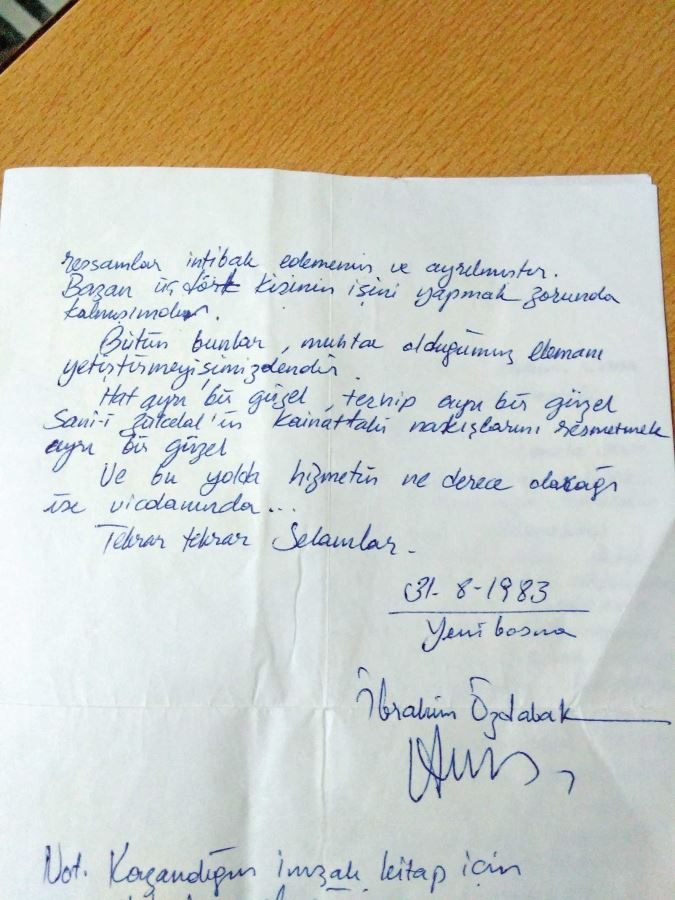 ressamlar intibak edememiş ve ayrılmıştır.
Bazan üç dört kişinin işini yapmak zorunda
kalmışımdır.
Bütün bunlar, muhtaç olduğumuz elemanı
yetiştirmeyişimizdendir.
Hat ayrı bir güzel, tezhip ayrı bir güzel
Sani-i Zülcelal'in kainattaki nakışlarını resmetmek
ayrı bir güzel
Ve bu yolda hizmetin ne derece olacağı
ise vicdanında...
Tekrar tekrar Selamlar.
31-8-1983
Yenibosna
İbrahim Özdabak
Not. Kazandığın imzalı kitap için